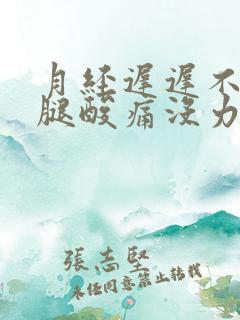 月经遲遲不
腿酸痛没力
張志堅
未任同意禁止转载